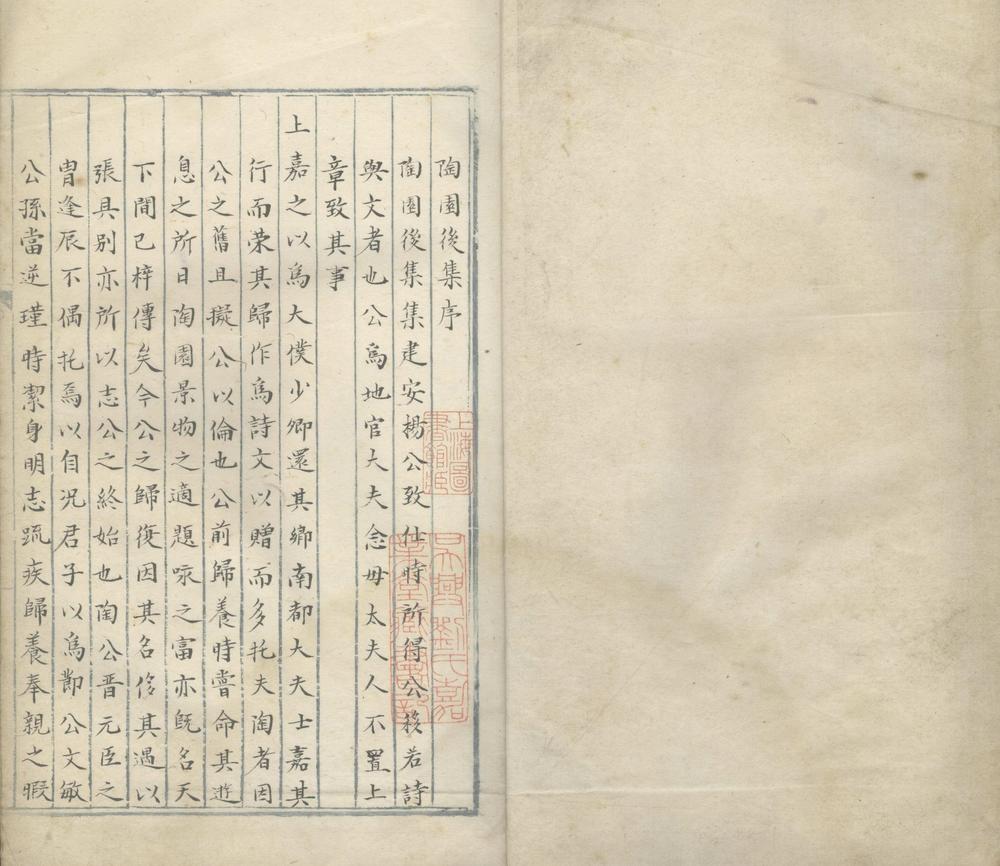 陶園後集序
陶園後集集建安楊公致仕時所得公移若詩
與文者也公爲地官大夫念母太夫人不置上
章致其事
上嘉之以爲大僕少卿還其鄉南都大夫士嘉其
行而荣其歸作爲詩文以贈而多托夫陶者因
公之舊且擬公以倫也公前歸養時嘗命其遊
息之所曰陶園景物之適題咏之富亦旣名天
下間已梓傳矣今公之歸復因其名侈其遇以
張具别亦所以志公之終始也陶公晋元臣之
胄逢辰不偶托焉以自况君子以爲節公文敏
公孫當逆瑾時潔身明志疏疾歸養奉親之暇
上海圖
書館藏